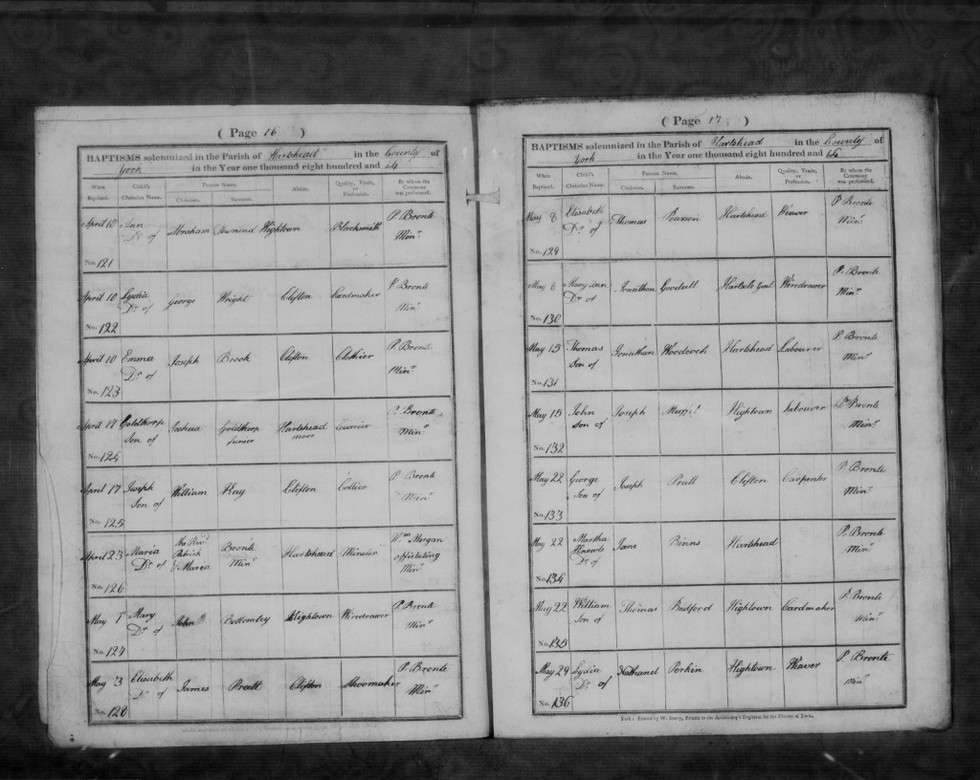 ( Page 16 )
BAPTISMS solemnized in the Parish of Hartshead in the County of
York in the Year one thousand eight hundred and 14
When Baptized. Child's Christian Name. Parents Name. Christian. Surname. Abode. Quality, Trade, or Profession. By whom the Ceremony was performed.
April 10 Ann Dr. of Abraham Townend Hightown Blacksmith P. Bronte Minr
No. 121
April 10 Lydia Dr. of George Wright Clifton Cardmaker P. Bronte Minr
No. 122
April 10 Emma Dr. of Joseph Brook Clifton Clothier P. Bronte Minr
No. 123
April 17 Goldthorp Son of Joshua Goldthorp Junior Hartshead moor Currier P. Bronte Minr
No. 124
April 17 Joseph Son of William Hay Clifton Collier P. Bronte Minr
No. 125
April 23 Maria Dr. of The Revd Patrick & Maria Bronte Minr Hartshead Minister Wm Morgan officiating Minr
No. 126
May 1 Mary Dr. of John Bottomley Hightown Wiredrawer P. Bronte Minr
No. 127
May 3 Elizabeth Dr. of James Pratt Clifton Shoemaker P. Bronte Minr
No. 128
( Page 17 )
BAPTISMS solemnized in the Parish of Hartshead in the County of
York in the Year one thousand eight hundred and 14
When Baptized. Child's Christian Name. Parents Name. Christian. Surname. Abode. Quality, Trade, or Profession. By whom the Ceremony was performed.
May 8 Elizabeth Dr. of Thomas Pearson Hartshead Weaver P. Bronte Minr
No. 129
May 8 Mary Ann Dr. of Jonathan Goodall Wiredrawer P. Bronte Minr
No. 130
May 15 Thomas Son of Jonathan Woodcock Hartshead Labourer P. Bronte Minr
No. 131
May 15 John Son of Joseph Hightown Labourer P. Bronte Minr
No. 132
May 22 George Son of Joseph Pratt Clifton Carpenter P. Bronte Minr
No. 133
May 22 Martha Dr. of Jane Binns Hartshead P. Bronte Minr
No. 134
May 22 William Son of Thomas Bedford Hightown Cardmaker P. Bronte Minr
No. 135
May 29 Lydia Dr. of Nathanel Perkin Hightown Weaver P. Bronte Minr
No. 136
York: Printed by W. Storry, Printer to the Archbishop's Registrar for the Diocese of York.